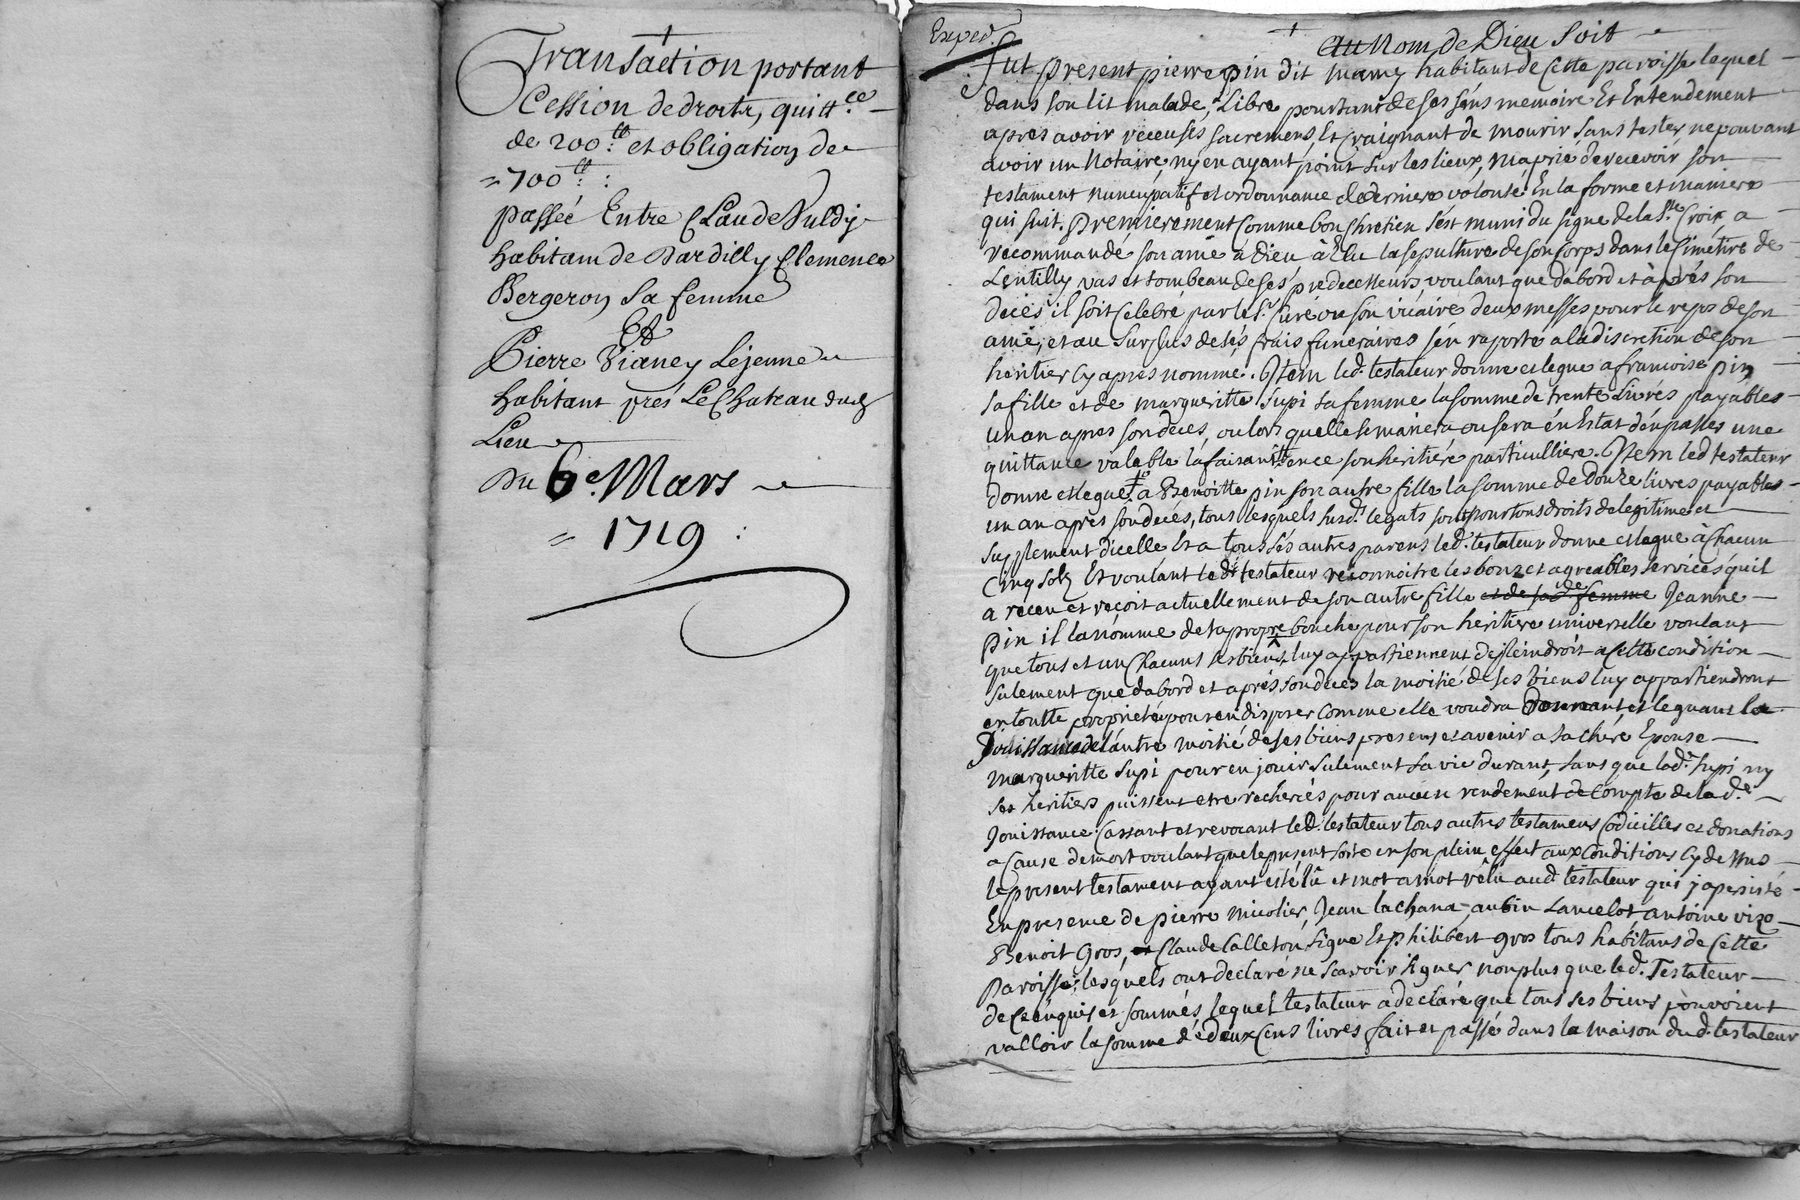 Transaction portant
Cession de droits, quitt.ce
de 200.tt et obligation de
= 700.tt :
passée Entre Claude Vuldy
habitant de Dardilly Clemence
Bergeron Sa femme
Et
Pierre Vianey Lejeune
habitant prés Le Chateau dud
Lieu
Du 6e. Mars
= 1719 :
Exped.
Au Nom de Dieu Soit
fut present pierre pin dit mamy habitant de Cette paroisse lequel
dans son lit malade, Libre pourtant de ses séns memoire Et Entendement
apres avoir receu ses sacremens, Et Craignant de mourir sans tester ne pouvant
avoir un Notaire, ny en ayant point sur les lieux, m'a prié de recevoir son
testament nuncupatif et ordonnance de derniere volonté En la forme et maniere
qui suit. Premierement Comme bon Chretien s'est muni du signe de la S.te Croix a
recommandé son ame a Dieu à Elu la sepulture de son Corps dans le Cimetire de
Lentilly vas et tombeau de sés predecesseurs voulant que d'abord et aprés son
decés il soit Celebré par le S.r Curé ou son vicaire deux messes pour le repos de son
ame, et au surplus de sés frais funeraires s'én raporte a la discretion de son
heritier Cy apres nommé. Item led. testateur donne et legue a francoise pin
sa fille et de margueritte Supi sa femme la somme de trente Livrés payables
un an apres son decés, ou lors quelle se mariera ou sera én Estat d'én passer une
quittance valable la faisant ence son heritiére particulliere. Item led testateur
donne et legue a Benoitte pin son autre fille la somme de douze livres payables
un an aprés son decés, tous lesquels susd. legats sont pour tous droits de legitime et
supplement dicelle Et a tous sés autres parens led. testateur donne et legue à Chacun
Cinq sols Et voulant led. testateur réconnoitre les bons et agreables services quil
a receu et reçoit actuellement de son autre fille et de sad. femme Jeanne
pin il la nomme de sa propre bouche pour son heritiere universelle voulant
que tous et un Chacuns ses biens luy appartiennent de plein droit a Cette condition
sulement que d'abord et aprés son decés la moitié de ses biens luy appartiendront
en toutte proprieté pour en disposer comme elle voudra donnant et leguant la
Jouissance de l'autre moitié de ses biens presens et avenir a sa chére Epouse
margueritte Supi pour en jouir sulement sa vie durant, sans que lad. Supi ny
ses heritiers puissent etre recherchés pour aucun rendement de Compte de lad.e
Jouissance. Cassant et revocant led. testateur tous autres testamens Codicilles et donations
a Cause de mort voulant que le present sorte en son plein effect aux Conditions Cy dessus
le present testament ayant esté lû et mot a mot rélû aud testateur qui y a persisté
En presence de pierre micolier, Jean lachana, aubin Lancelot antoine vize
Benoit Gros, Claude Calleton signé Et philibert gros tous habitans de Cette
Paroisse; lesquels ont declaré ne scavoir signer non plus que led. Testateur
de Ce énquis et sommés, lequel testateur a declaré que tous ses biens pouvoient
valloir la somme de deux Cens livres fait et passé dans la maison dud. testateur